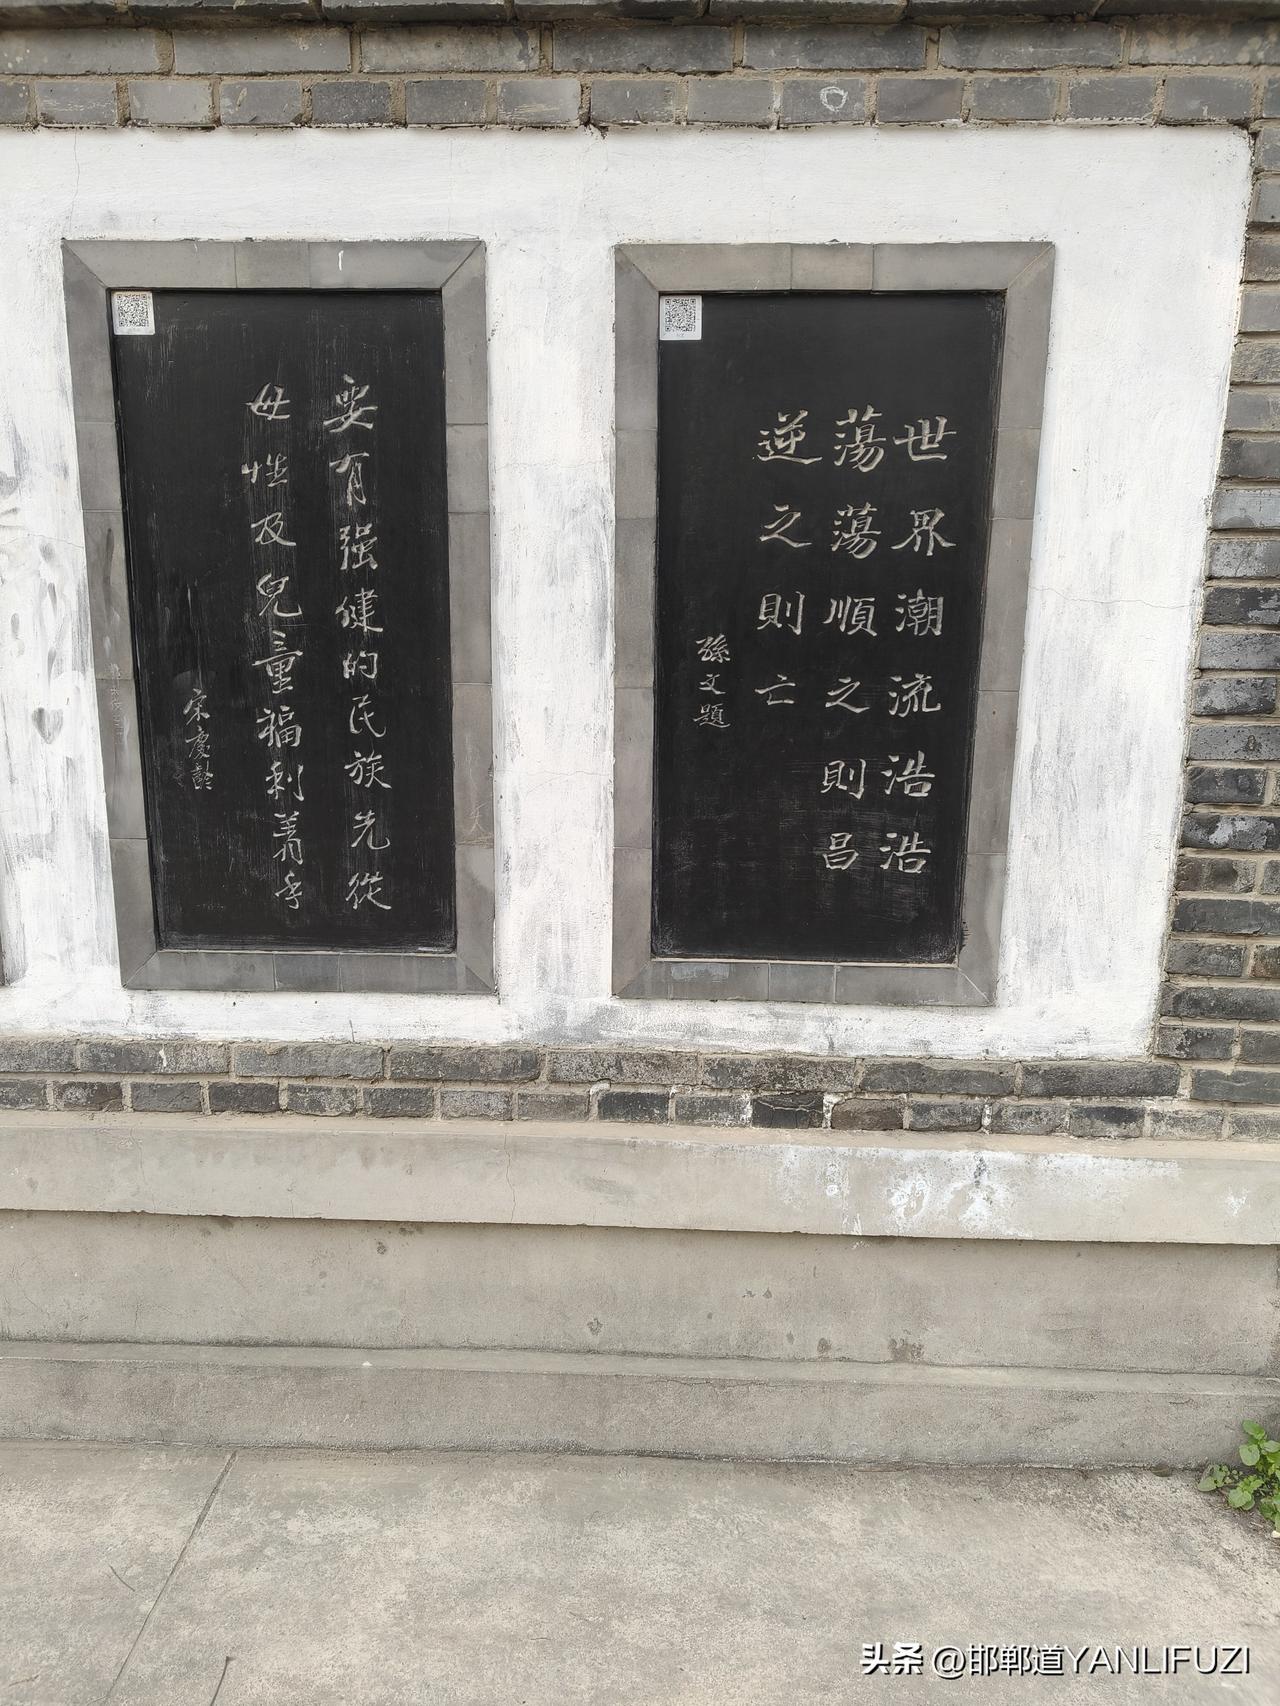 世界潮流浩浩
蕩蕩順之則昌
逆之則亡
孫文題
要有强健的民族先從
母性及兒童福利着手
宋慶齡
头条 @邯郸道YANLIFUZI